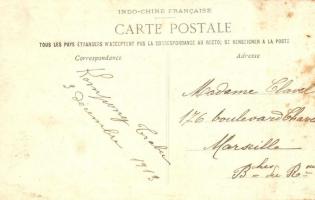 INDO-CHINE FRANÇAISE
CARTE POSTALE
TOUS LES PAYS ÉTRANGERS N'ACCEPTENT PAS LA CORRESPONDANCE AU RECTO, SE RENSEIGNER A LA POSTE
Correspondance
Adresse
Kompong
3 décembre 1913
Madame Clavel
176 boulevard Chave
Marseille
Bches du R